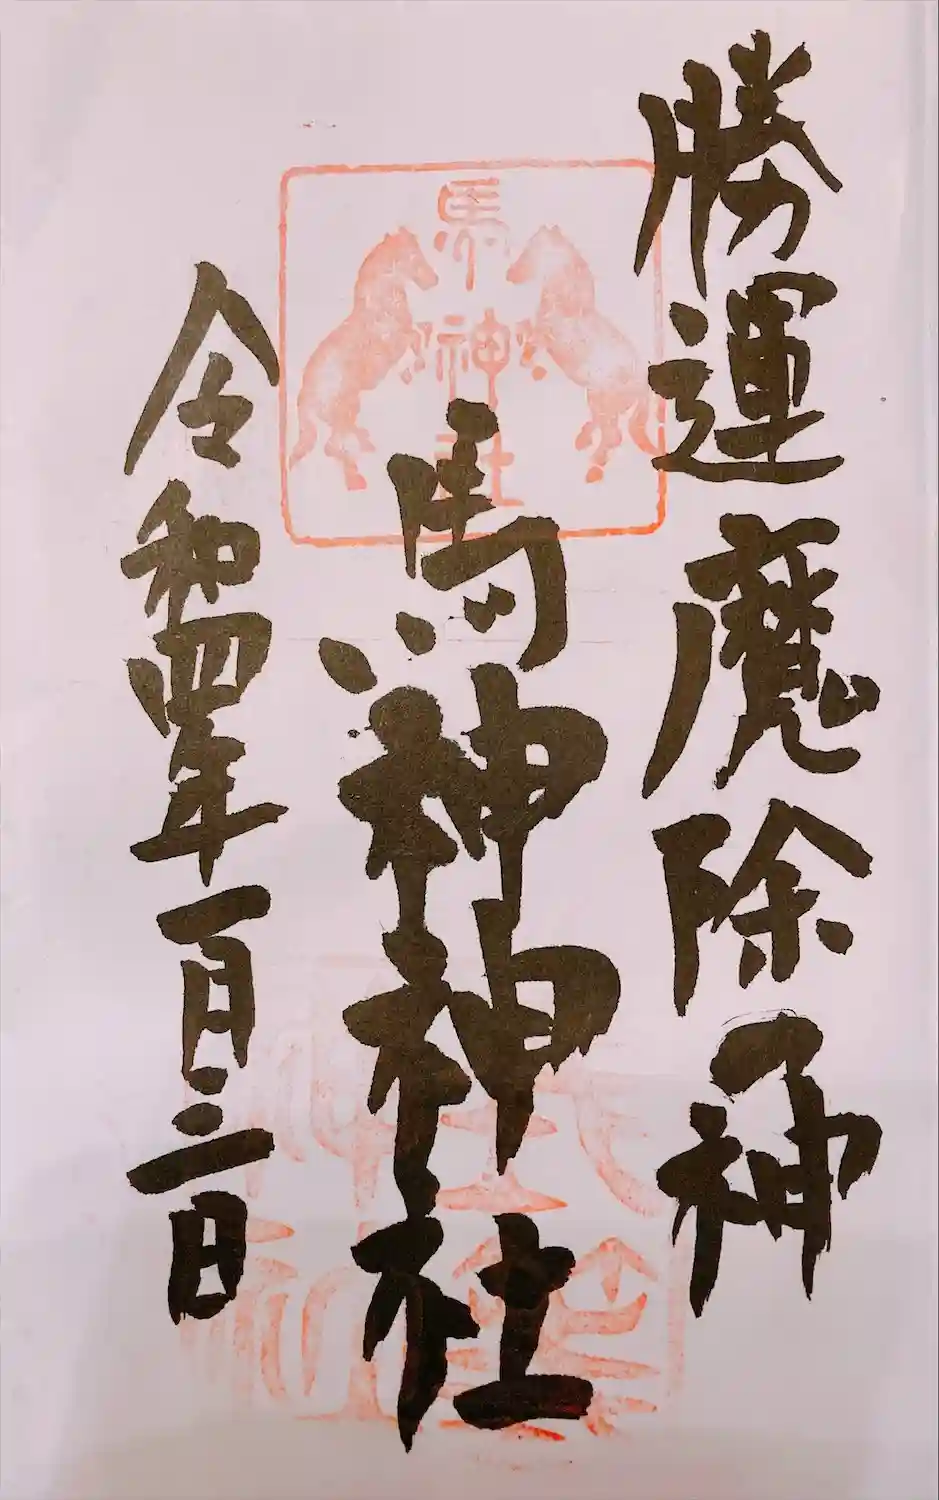 勝運魔除の神
馬神神社
令和四年一月三日
馬神社